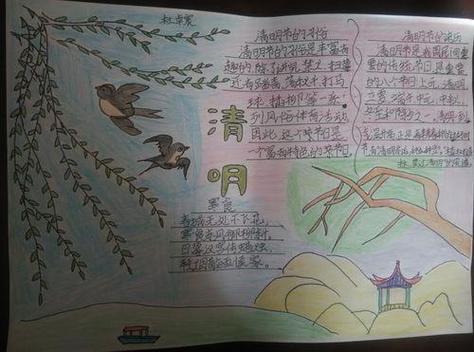 清明节的习俗
清明节的习俗是丰富有
趣的,除了讲究禁火、扫墓
还有踏青、荡秋千、打马
球、插柳等一系
列风俗体育活动
因此,这个节日是
一个富有特色的节日
清明节的来历
清明节是我国民间重
要的传统节日,是重要
的八个节日上元、清明、
立夏、端午、中秋、
清明
寒食
春城无处不飞花
寒食东风御柳斜
日暮汉宫传蜡烛
轻烟散入五侯家